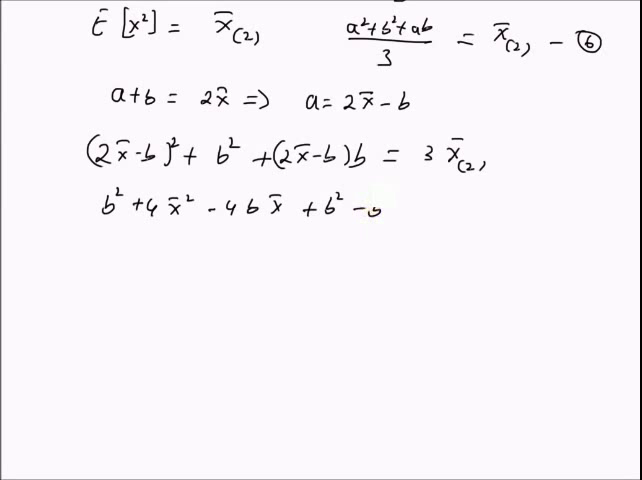 E [x²] = x̄₍₂₎   (a²+b²+ab)/3 = x̄₍₂₎ - ⑥
a+b = 2x̄ => a = 2x̄ - b
(2x̄-b)² + b² + (2x̄-b)b = 3 x̄₍₂₎
b² + 4x̄² - 4bx̄ + b² - b